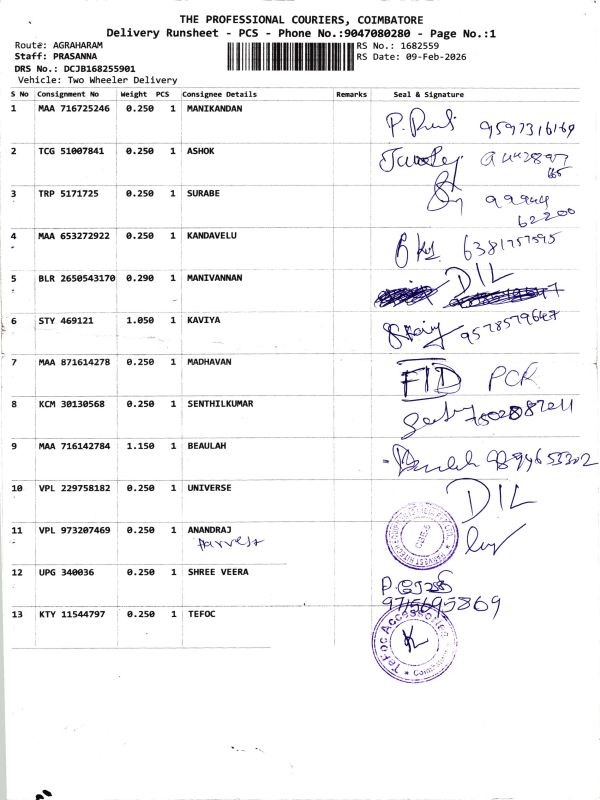 THE PROFESSIONAL COURIERS, COIMBATORE
Delivery Runsheet - PCS - Phone No.:9047080280 - Page No.:1
Route: AGRAHARAM
Staff: PRASANNA
DRS No.: DCJB168255901
Vehicle: Two Wheeler Delivery
RS No.: 1682559
RS Date: 09-Feb-2026
S No Consignment No Weight PCS Consignee Details Remarks Seal & Signature
1 MAA 716725246 0.250 1 MANIKANDAN 9597316169
2 TCG 51007841 0.250 1 ASHOK
3 TRP 5171725 0.250 1 SURABE 99944
62200
4 MAA 653272922 0.250 1 KANDAVELU 6381757595
5 BLR 2650543170 0.290 1 MANIVANNAN DIL
6 STY 469121 1.050 1 KAVIYA 9578579647
7 MAA 871614278 0.250 1 MADHAVAN FID PCR
8 KCM 30130568 0.250 1 SENTHILKUMAR
9 MAA 716142784 1.150 1 BEAULAH Beulah 9894653302
10 VPL 229758182 0.250 1 UNIVERSE DIL
11 VPL 973207469 0.250 1 ANANDRAJ
Harvest
12 UPG 340036 0.250 1 SHREE VEERA
9715695869
13 KTY 11544797 0.250 1 TEFOC
TeFOC ACCESSORIES